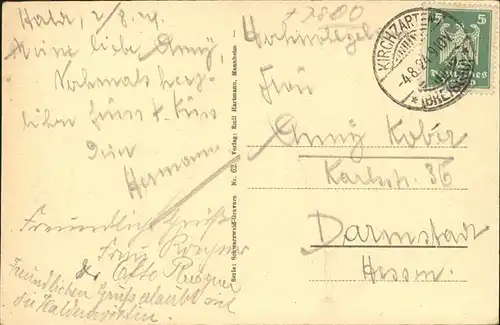 Halde, 2/8.24.
Meine liebe Anny,
Nochmals herz-
lichen Gruß & Kuss
Dein
Hermann
Freundliche Grüße
Frau
Otto
Freundlichen Gruß erlaubt sich
die Haldenwirtin.
Serie: Schwarzwald-Gravure. Nr. 62. Verlag: Emil Hartmann, Mannheim
+ 2800
Frau
Anny Kober
Karlstr. 36
Darmstadt
Hessen.
KIRCHZARTEN
-4.8.24
(BREISGAU)
5 5
Deutsches